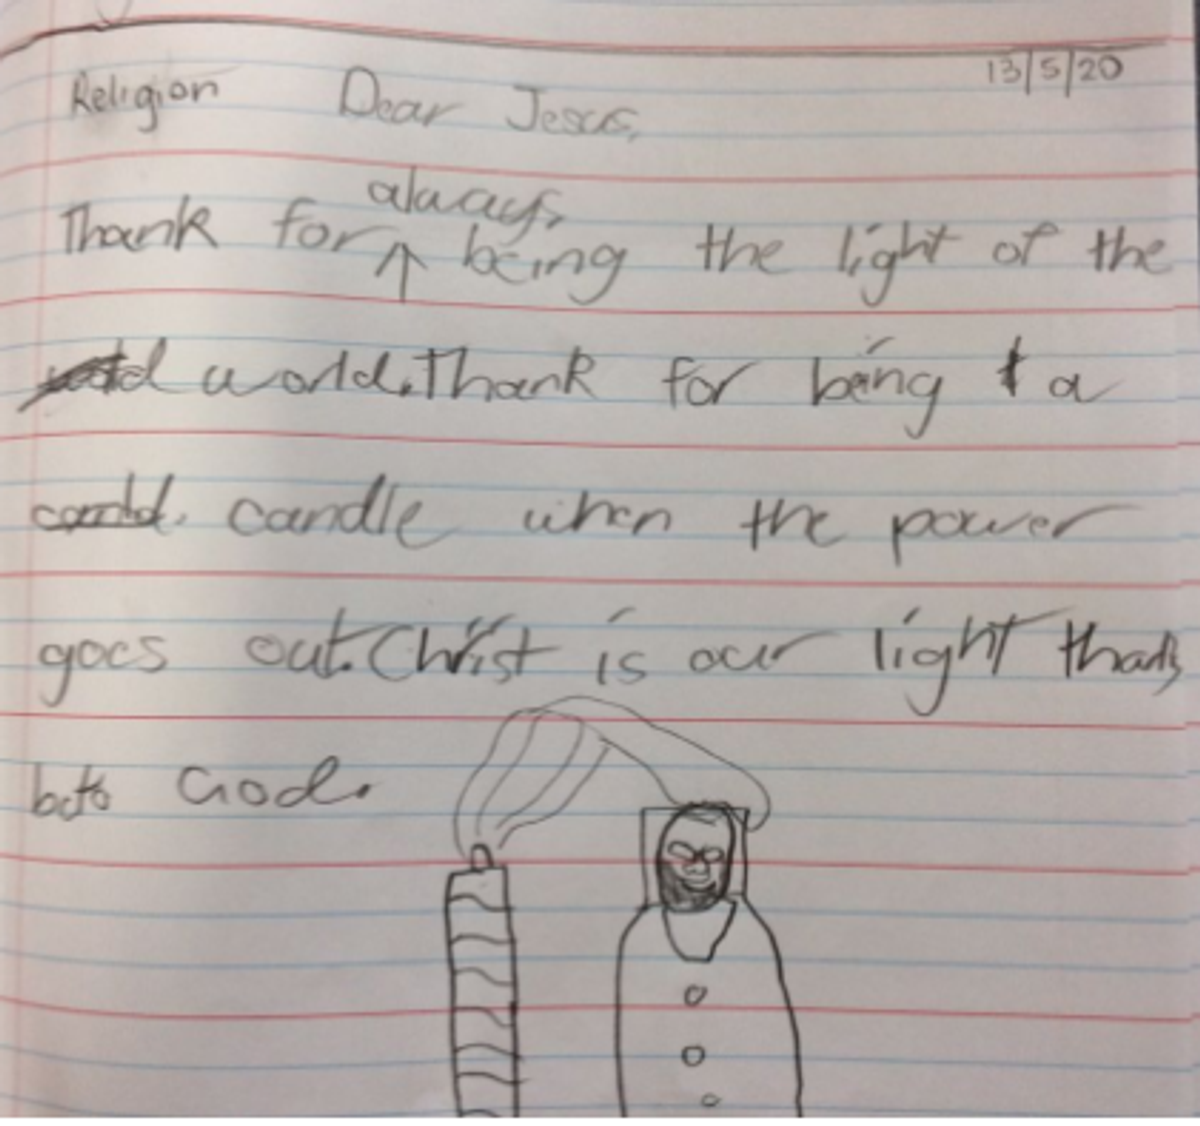 13/5/20
Religion Dear Jesus,
Thank for always being the light of the
world. Thank for being a
candle when the power
goes out. Christ is our light thanks
to God.